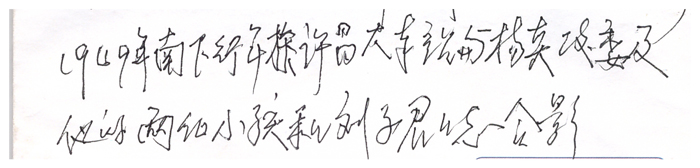 1949年南下行车探许昌火车站与杨英政委及
他的两位小孩和刘子君同志合影